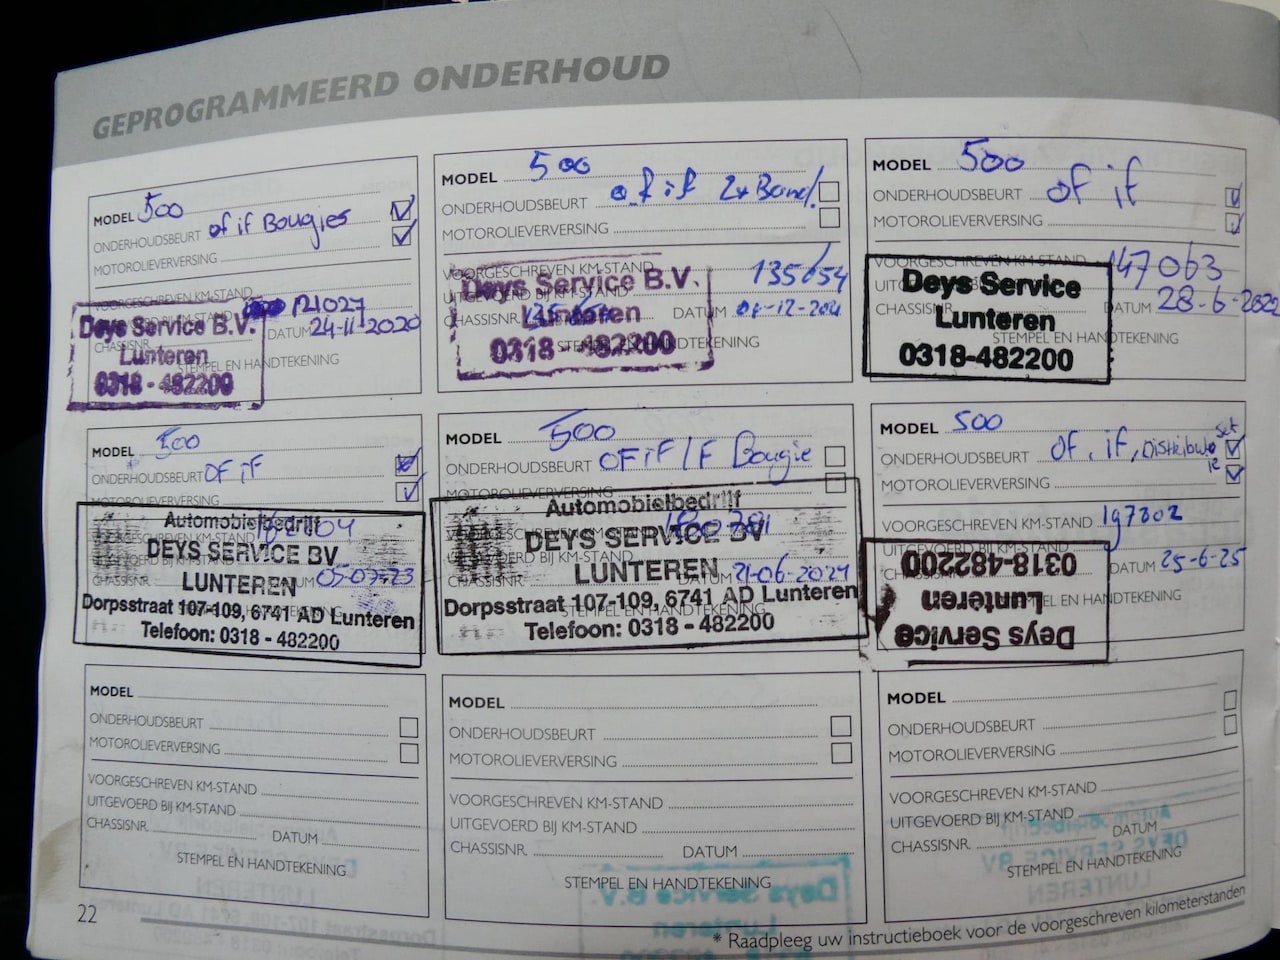 GEPROGRAMMEERD ONDERHOUD
MODEL 500
ONDERHOUDSBEURT of if Bougies
MOTOROLIEVERVERSING
VOORGESCHREVEN KM-STAND
121027
CHASSISNR. DATUM 24-11-2020
STEMPEL EN HANDTEKENING
Deys Service B.V.
Lunteren
0318 - 482200
MODEL 500
ONDERHOUDSBEURT of if 2x
MOTOROLIEVERVERSING
VOORGESCHREVEN KM-STAND 135654
UITGEVOERD BIJ KM-STAND
CHASSISNR. DATUM
STEMPEL EN HANDTEKENING
Deys Service B.V.
Lunteren
0318 - 482200
MODEL 500
ONDERHOUDSBEURT of if
MOTOROLIEVERVERSING
VOORGESCHREVEN KM-STAND 147063
CHASSISNR. DATUM 28-6-
STEMPEL EN HANDTEKENING
Deys Service
Lunteren
0318-482200
MODEL 500
ONDERHOUDSBEURT OF iF
MOTOROLIEVERVERSING
CHASSISNR. DATUM 05-07-23
Automobielbedrijf
DEYS SERVICE BV
LUNTEREN
Dorpsstraat 107-109, 6741 AD Lunteren
Telefoon: 0318 - 482200
MODEL 500
ONDERHOUDSBEURT OF iF / F Bougie
MOTOROLIEVERVERSING
CHASSISNR. DATUM 21-06-2024
STEMPEL EN HANDTEKENING
Automobielbedrijf
DEYS SERVICE BV
LUNTEREN
Dorpsstraat 107-109, 6741 AD Lunteren
Telefoon: 0318 - 482200
MODEL 500
ONDERHOUDSBEURT of, if, Distributie set
MOTOROLIEVERVERSING
VOORGESCHREVEN KM-STAND 197302
UITGEVOERD BIJ KM-STAND
CHASSISNR. DATUM 25-6-25
STEMPEL EN HANDTEKENING
Deys Service
Lunteren
0318-482200
MODEL
ONDERHOUDSBEURT
MOTOROLIEVERVERSING
VOORGESCHREVEN KM-STAND
UITGEVOERD BIJ KM-STAND
CHASSISNR. DATUM
STEMPEL EN HANDTEKENING
MODEL
ONDERHOUDSBEURT
MOTOROLIEVERVERSING
VOORGESCHREVEN KM-STAND
UITGEVOERD BIJ KM-STAND
CHASSISNR. DATUM
STEMPEL EN HANDTEKENING
MODEL
ONDERHOUDSBEURT
MOTOROLIEVERVERSING
VOORGESCHREVEN KM-STAND
UITGEVOERD BIJ KM-STAND
CHASSISNR. DATUM
STEMPEL EN HANDTEKENING
22
* Raadpleeg uw instructieboek voor de voorgeschreven kilometerstanden